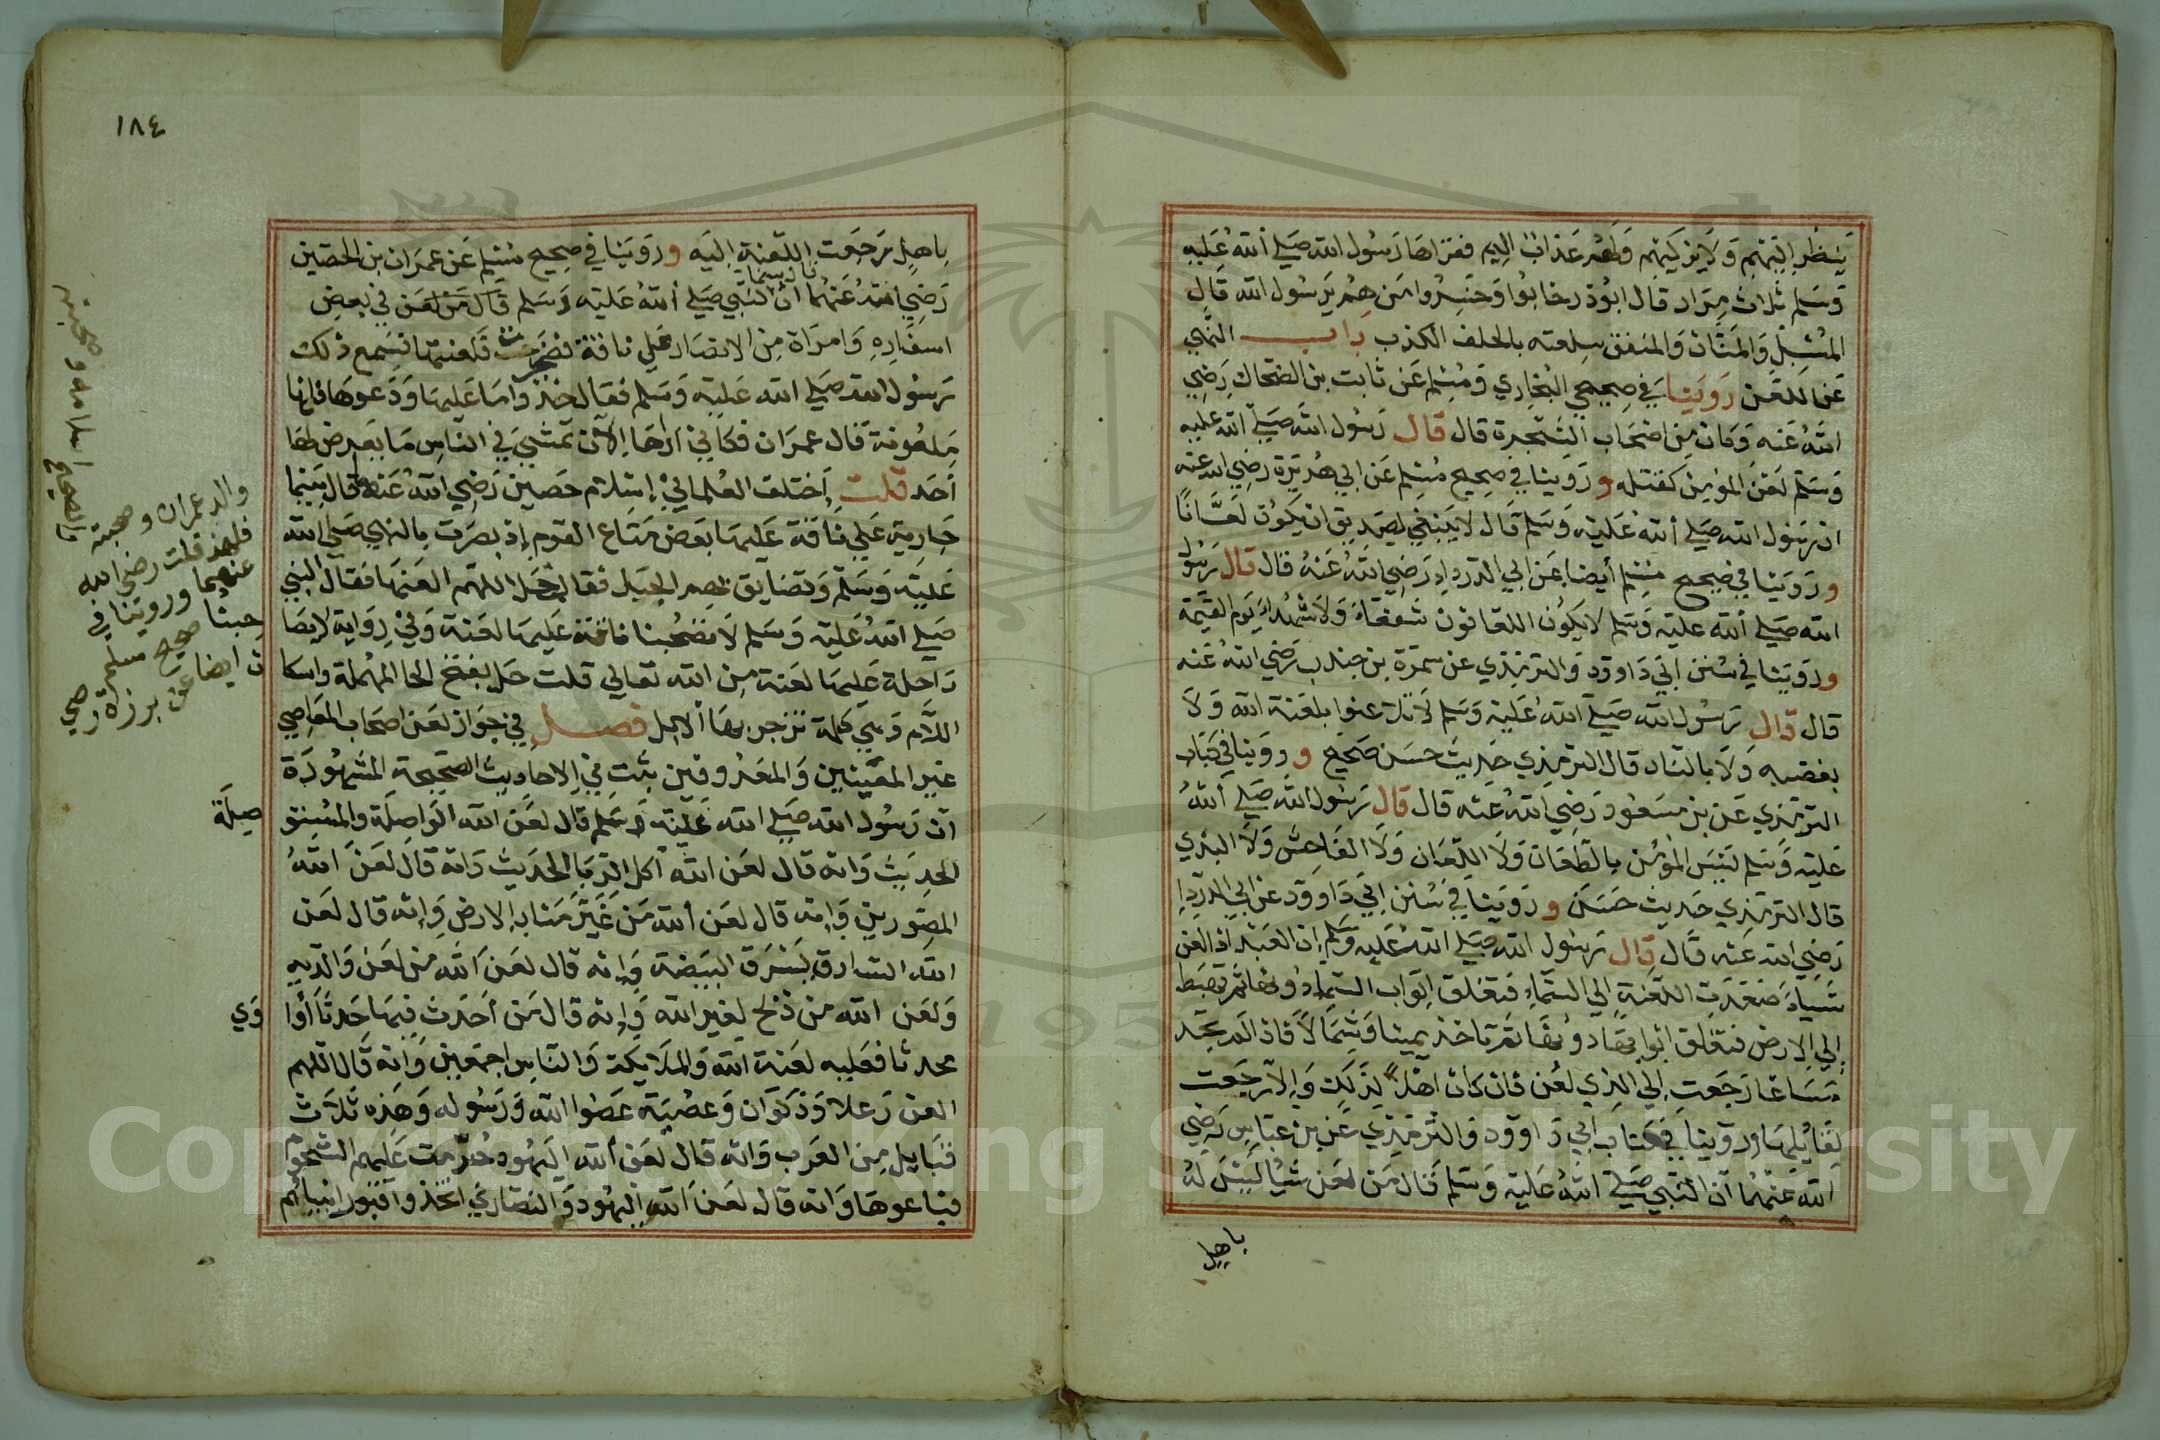 ينظر اليهم ولا يزكيهم ولهم عذاب اليم فقراها رسول الله صلي الله عليه
وسلم ثلاث مرار قال ابوذر خابوا وخسروا من هم يرسول الله قال
المسبل والمنان والمنفق سلعته بالحلف الكذب باب النهي
عن اللعن روينا في صحيحي البخاري ومسلم عن ثابت بن الضحاك رضي
الله عنه وكان من اصحاب الشجرة قال قال رسول الله صلي الله عليه
وسلم لعن المؤمن كقتله وروينا في صحيح مسلم عن ابي هريرة رضي الله عنه
ان رسول الله صلي الله عليه وسلم قال لا ينبغي لصديق ان يكون لعانا
وروينا في صحيح مسلم أيضا عن ابي الدرداء رضي الله عنه قال قال رسول
الله صلي الله عليه وسلم لا يكون اللعانون شفعاء ولا شهداء يوم القيمة
وروينا في سنن ابي داوود والترمذي عن سمرة بن جندب رضي الله عنه
قال قال رسول الله صلي الله عليه وسلم لا تلاعنوا بلعنة الله ولا
بغضبه ولا بالنار قال الترمذي حديث حسن صحيح وروينا في كتاب
الترمذي عن بن مسعود رضي الله عنه قال قال رسول الله صلي الله
عليه وسلم ليس المؤمن بالطعان ولا اللعان ولا الفاحش ولا البذي
قال الترمذي حديث حسن وروينا في سنن ابي داوود عن ابي الدرداء
رضي الله عنه قال قال رسول الله صلي الله عليه وسلم ان العبد اذا لعن
شيأ صعدت اللعنة الي السماء فتغلق ابواب السماء دونها ثم تهبط
إلي الارض فتغلق ابوابها دونها ثم تاخذ يمينا وشمالا فاذا لم تجد
مساغا رجعت إلي الذي لعن فان كان اهلا لذلك والا رجعت
لقايلها وروينا في كتاب ابي داوود والترمذي عن بن عباس رضي
الله عنهما ان النبي صلي الله عليه وسلم قال من لعن شيا ليس له
باهل
١٨٤
باهل رجعت اللعنة اليه وروينا في صحيح مسلم عن عمران بن الحصين
رضي الله عنهما ان النبي صلي الله عليه وسلم قال من لعن في بعض
قال بينما
اسفاره وامراة من الانصار علي ناقة فضجرت فلعنتها فسمع ذلك
رسول الله صلي الله عليه وسلم فقال خذوا ما عليها ودعوها فانها
ملعونة قال عمران فكاني اراها الآن تمشي في الناس ما يعرض لها
احد قلت اختلف العلما في إسلام حصين رضي الله عنه قال بينما
جارية علي ناقة عليها بعض متاع القوم إذ بصرت بالنبي صلي الله
عليه وسلم وتضايق بهم الجبل فقالت حل اللهم العنها فقال النبي
صلي الله عليه وسلم لا تصحبنا ناقة عليها لعنة وفي رواية لا يصا
راحلة عليها لعنة من الله تعالي قلت حل بفتح الحا المهملة واسكا
اللام وهي كلمة تزجر بها الابل فصل في جواز لعن اصحاب المعاصي
غير المعينين والمعروفين ثبت في الاحاديث الصحيحة المشهورة
ان رسول الله صلي الله عليه وسلم قال لعن الله الواصلة والمستو
الحديث وانه قال لعن الله آكل الربا الحديث وانه قال لعن الله
المصورين وانه قال لعن الله من غير منار الارض وانه قال لعن
الله السارق يسرق البيضة وانه قال لعن الله من لعن والديه
ولعن الله من ذبح لغير الله وانه قال من أحدث فيها حدثا أوا
محدثا فعليه لعنة الله والملايكة والناس اجمعين وانه قال اللهم
العن رعلا وذكوان وعصية عصوا الله ورسوله وهذه ثلاث
قبايل من العرب وانه قال لعن الله اليهود حرمت عليهم الشحوم
فباعوها وانه قال لعن الله اليهود والنصاري اتخذوا قبور انبيائهم
اسلامه وصحبته
والصحيح
والد عمران وصحبته
فلهذ قلت رضي الله
عنهما وروينا في
حبنا صحيح مسلم
ن ايضا عن برزة رضي
صلة
وي
Copyright © King Saud University
1957